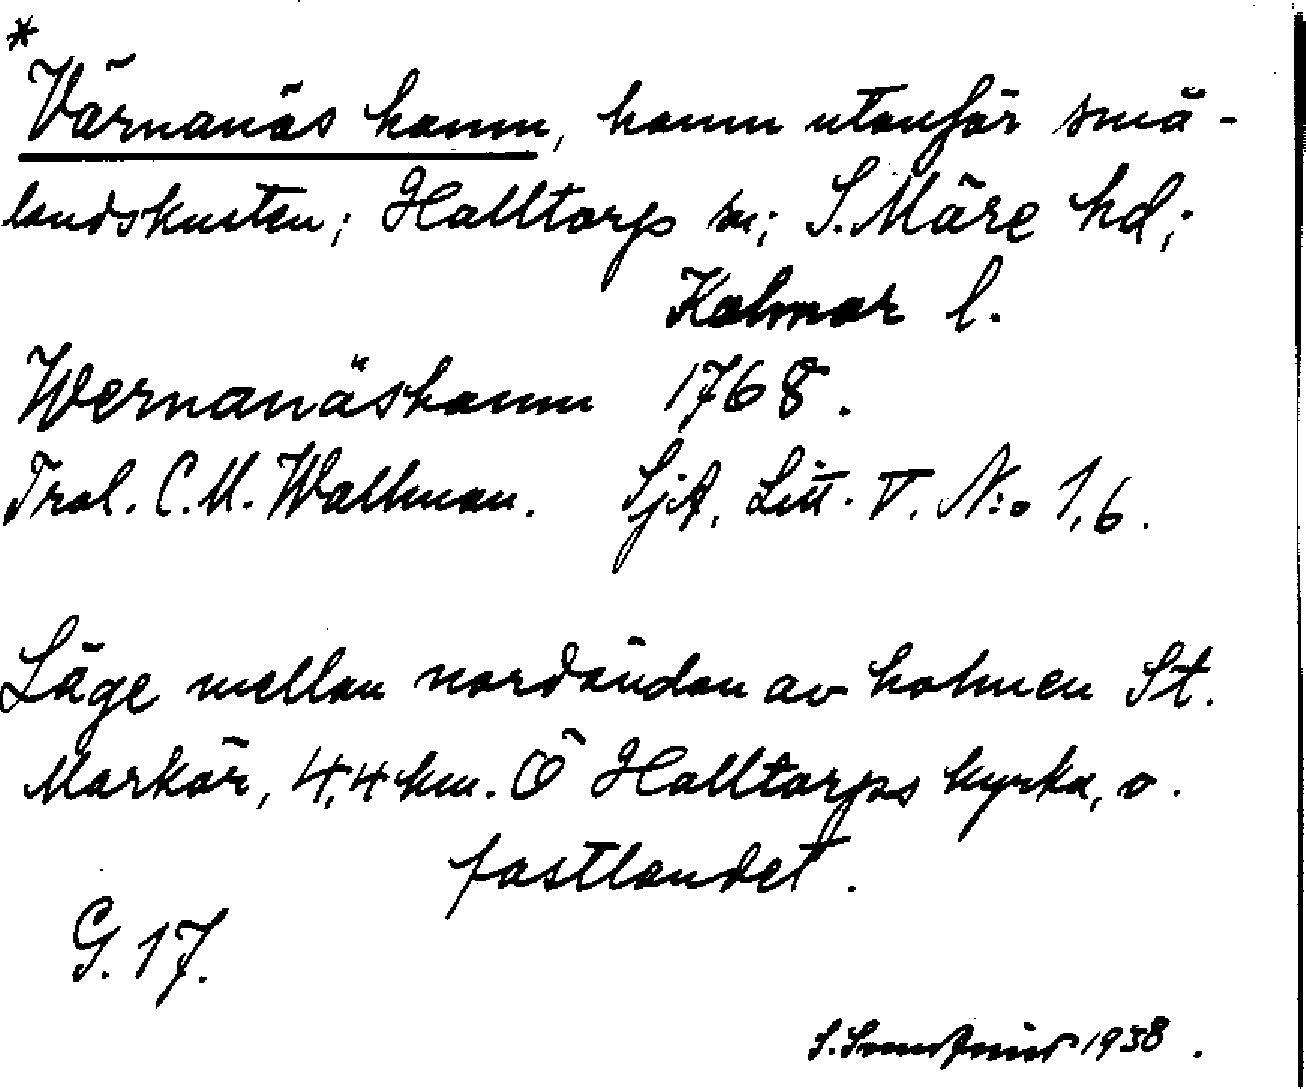 *
Värnanäs hamn, hamn utanför små-
landskusten; Halltorp sn; S. Möre hd;
Kalmar l.
Wernanäshamn 1768.
Trol. C. M. Wallman. SjA, Litt. V. N:o 1,6.
Läge mellan nordändan av holmen St.
Markör, 4,4 km. Ö Halltorps kyrka, o.
fastlandet.
G. 17.
S. 1938.